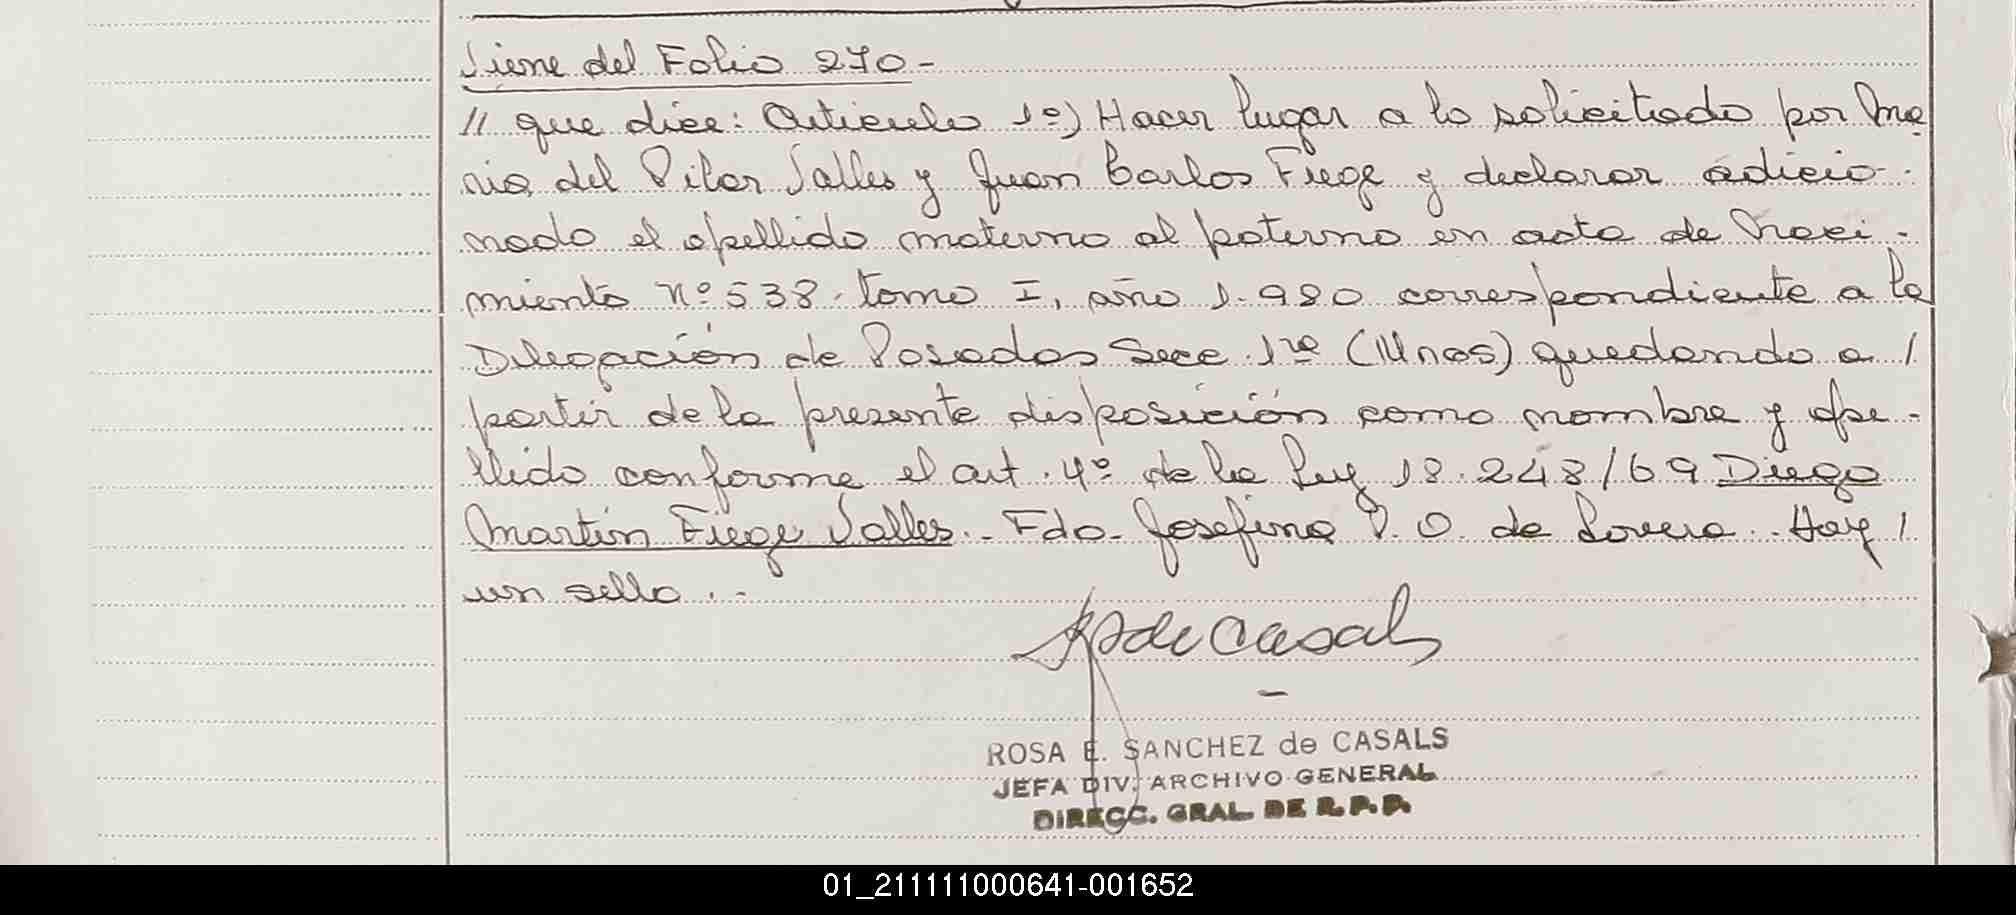 Viene del Folio 270-
// que dice: Articulo 1º) Hacer lugar a lo solicitado por Ma
ria del Pilar Valles y Juan Carlos Fiege y declarar adicio-
nado el apellido materno al paterno en acta de Naci-
miento nº 538. tomo I, año 1.980 correspondiente a la
Delegación de Posadas Secc. 1ra (Mnes) quedando a /
partir de la presente disposición como nombre y ape-
llido conforme el art. 4º de la Ley 18.248/69 Diego
Martín Fiege Valles.- Fdo. Josefina P. O. de Lovera. Hay /
un sello.-
RS de Casals
ROSA E. SANCHEZ de CASALS
JEFA DIV. ARCHIVO GENERAL
DIRECC. GRAL. DE R.P.P.
01_211111000641-001652